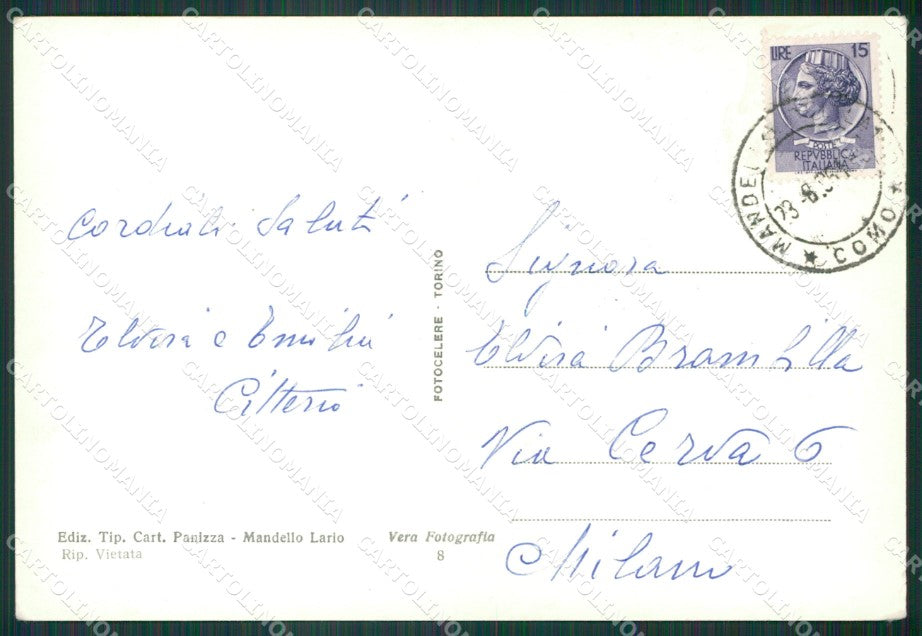 LIRE 15
POSTE
REPVBBLICA
ITALIANA
MANDELLO
COMO
Cordiali Saluti
Elvira e Emilia
Citterio
FOTOCELERE - TORINO
Signora
Elvira Brambilla
Via Cerva 6
Milano
Ediz. Tip. Cart. Panizza - Mandello Lario
Rip. Vietata
Vera Fotografia
8
CARTOLINOMANIA